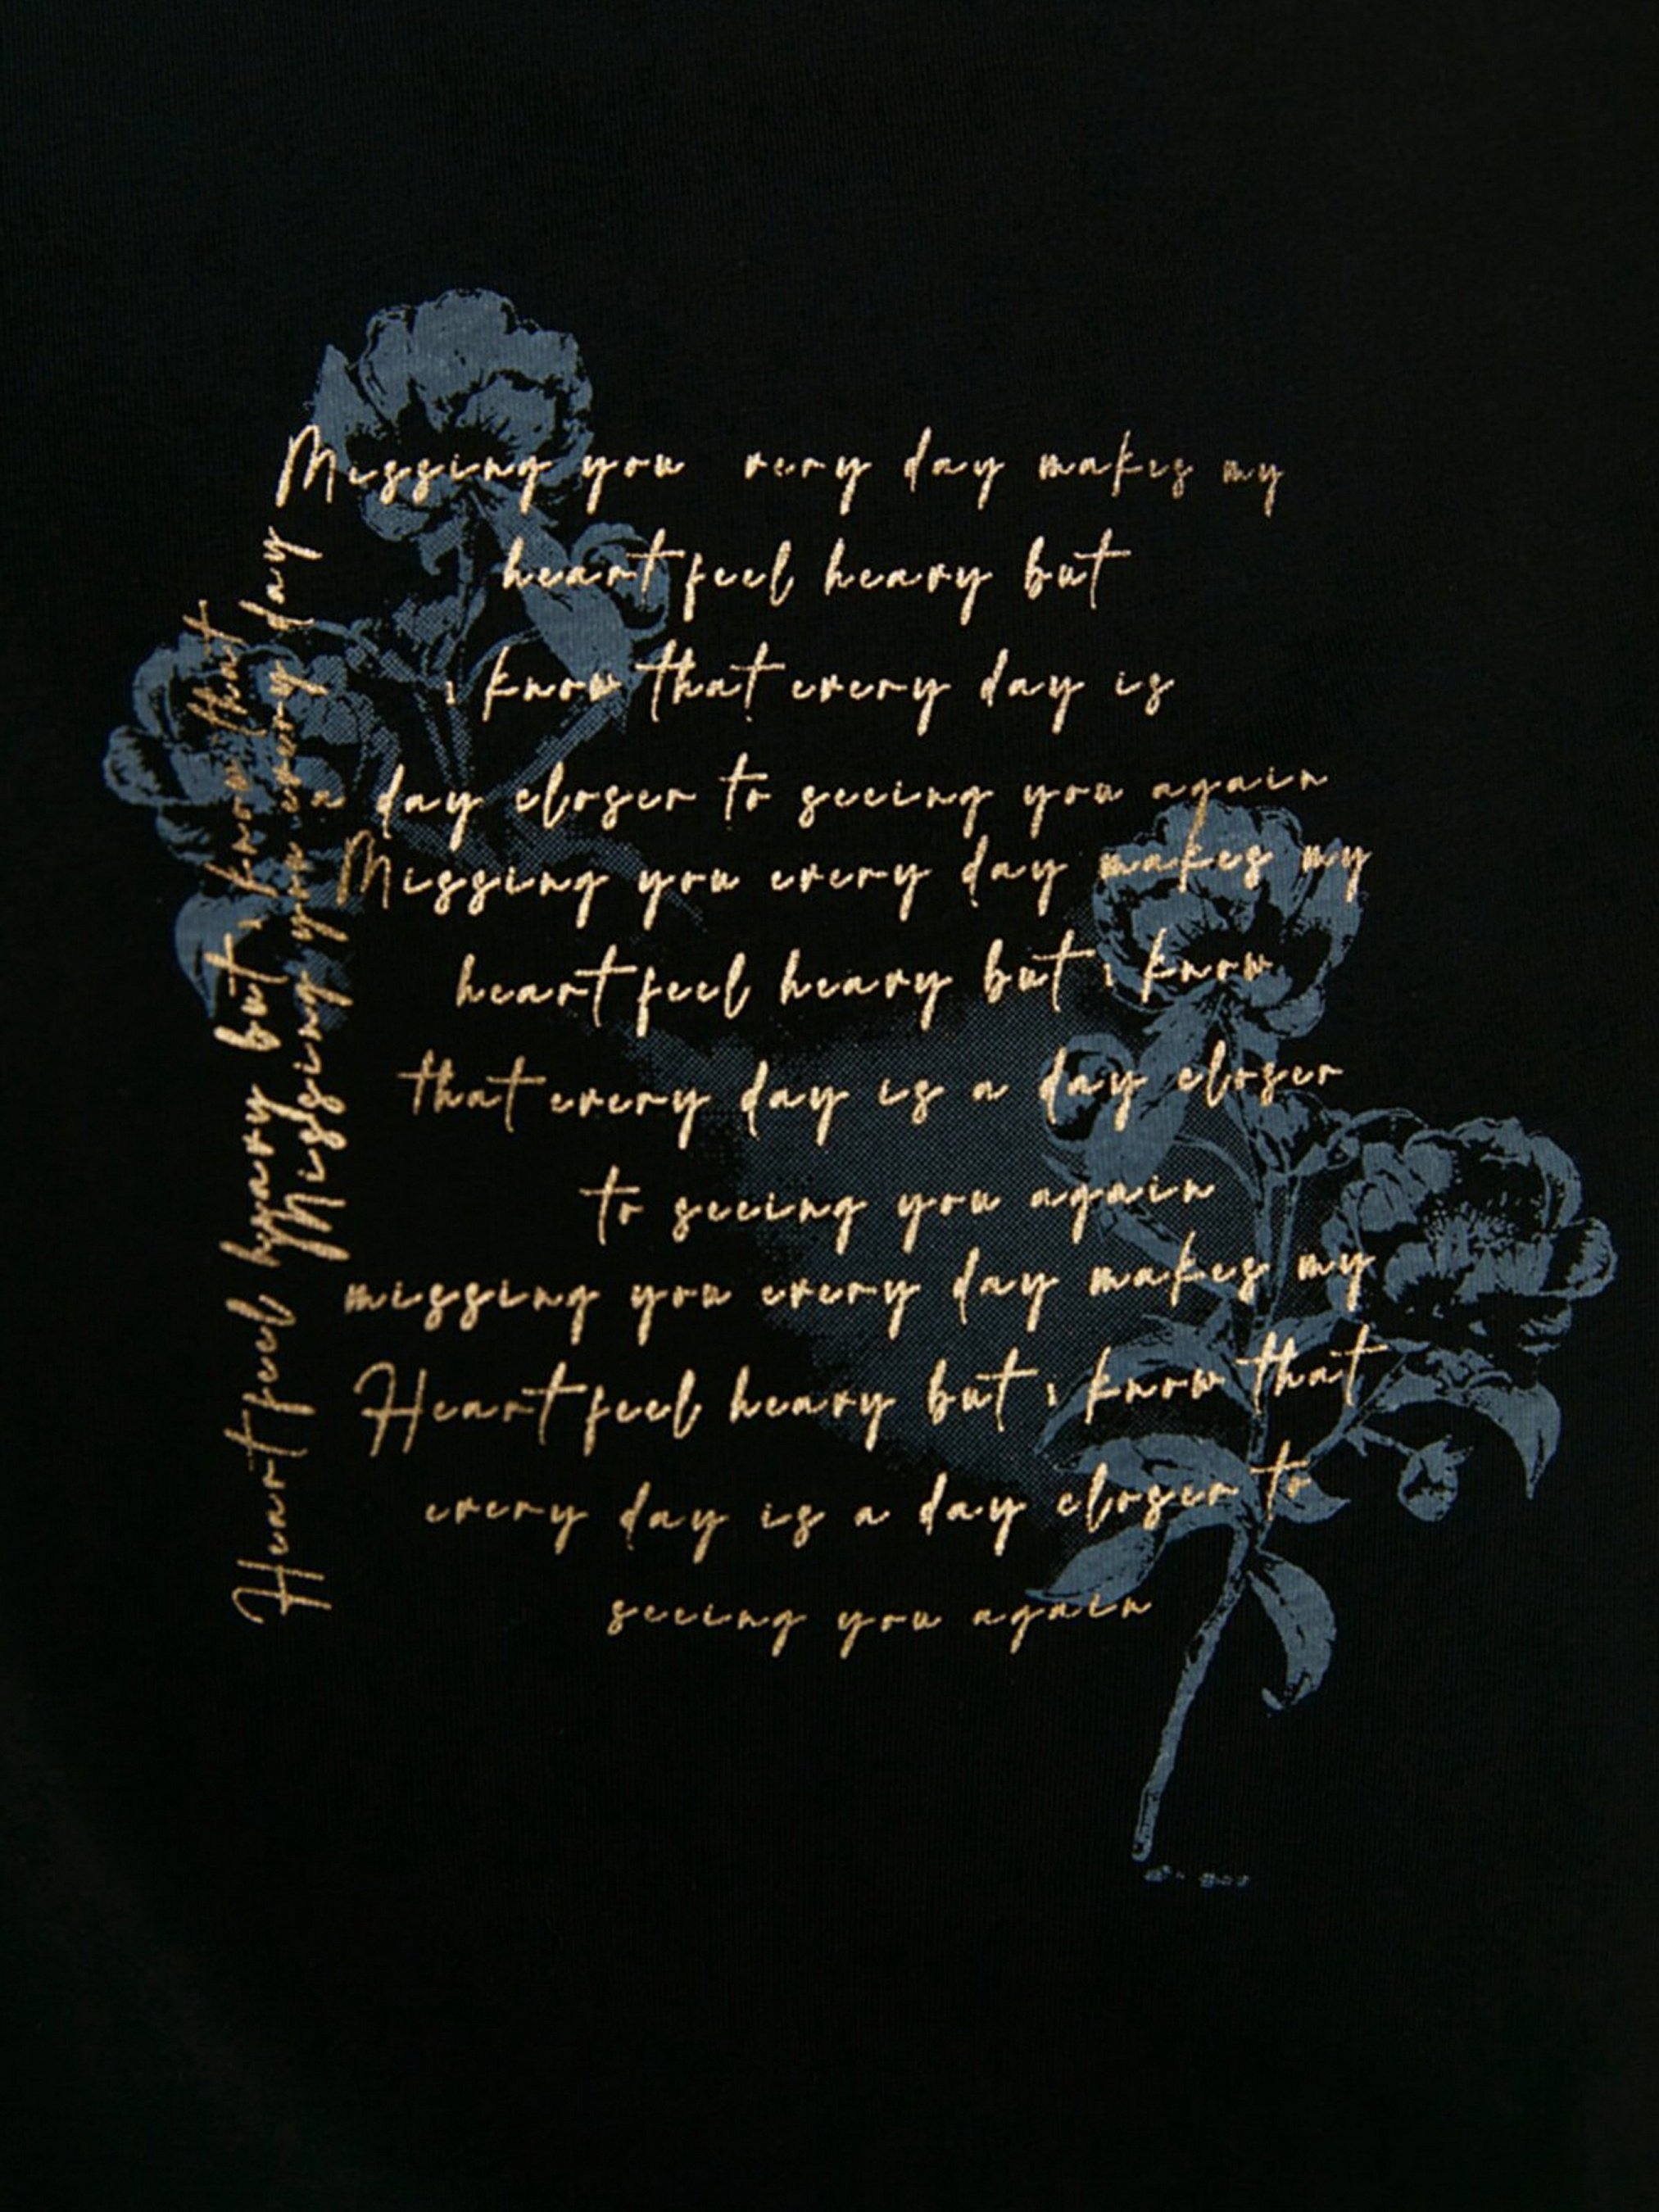 Missing you very day makes my
heart feel heavy but
i know that every day is
a day closer to seeing you again
Missing you every day makes my
heart feel heavy but i know
that every day is a day closer
to seeing you again
missing you every day makes my
Heart feel heavy but i know that
every day is a day closer to
seeing you again
Heart feel heavy but i know that
Missing you every day